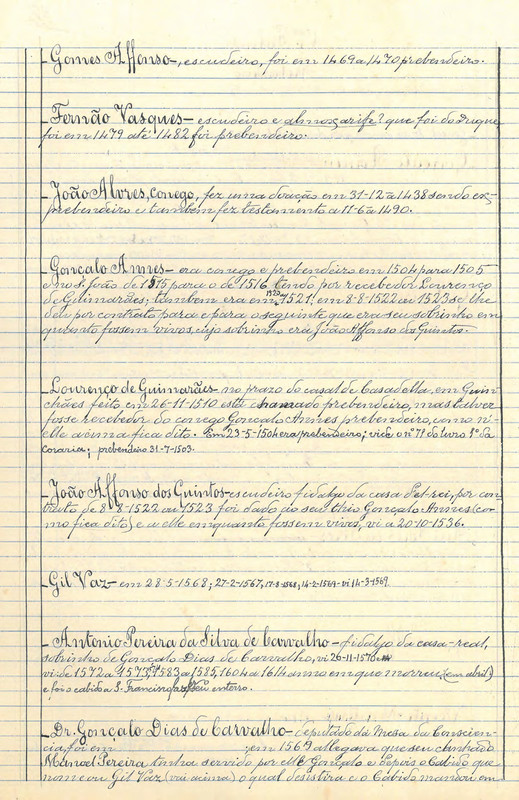 _Gomes Affonso-, escudeiro, foi em 1469 a 1470 prebendeiro.
_Fernão Vasques- escudeiro e almoxarife? que foi do Duque,
foi em 1479 até 1482 foi prebendeiro.
_João Alvres, conego, fez uma doação em 31-12-a 1438 sendo ex-
prebendeiro e tambem fez testamento a 11-6-a 1490.
_Gonçalo Annes- era conego e prebendeiro em 1504 para 1505
e no S. João de 1515 para o de 1516 tendo por recebedor Lourenço
de Guimarães; tambem era em 1520, 1521! em 8-8-1522 ou 1523 se lhe
deu por contrato para e para o seguinte que era seu sobrinho em-
quanto fossem vivos, cujo sobrinho era João Affonso dos Guintos.
_Lourenço de Guimarães- no prazo do casal de Casadella, em Guin-
chães feito, em 26-11-1510 está chamado prebendeiro, mas talvez
fosse recebedor do conego Gonçalo Annes prebendeiro, como n'
elle acima fica dito. Em 23-5-1504 era prebendeiro; vide o nº 71 do livro 1º da
Coraria; prebendeiro 31-7-1503.
_João Affonso dos Guintos- escudeiro fidalgo da casa d'el-rei, por con-
trato de 8-8-1522 ou 1523 foi dado ao seu thio Gonçalo Annes (co-
mo fica dito) e a elle emquanto fossem vivos, vi a 20-10-1536.
_Gil Vaz- em 28-5-1568; 27-2-1567, 17-8-1568, 14-2-1569- vi 14-3-1569.
_Antonio Pereira da Silva de Carvalho- fidalgo da casa-real,
sobrinho de Gonçalo Dias de Carvalho, vi 26-11-1570
vi de 1572 a 1573, 1583 a 1585, 1604 a 1614 anno em que morreu, (em abril)
e foi o cabido a S. Francisco seu enterro.
_Dr. Gonçalo Dias de Carvalho- deputado da Mesa da Conscien-
cia, foi em ; em 1569 allegava que seu cunhado
Manoel Pereira tinha servido por elle Gonçalo e depois o Cabido que
nomeou Gil Vaz (vai acima) o qual desistira e o Cabido mandou em-